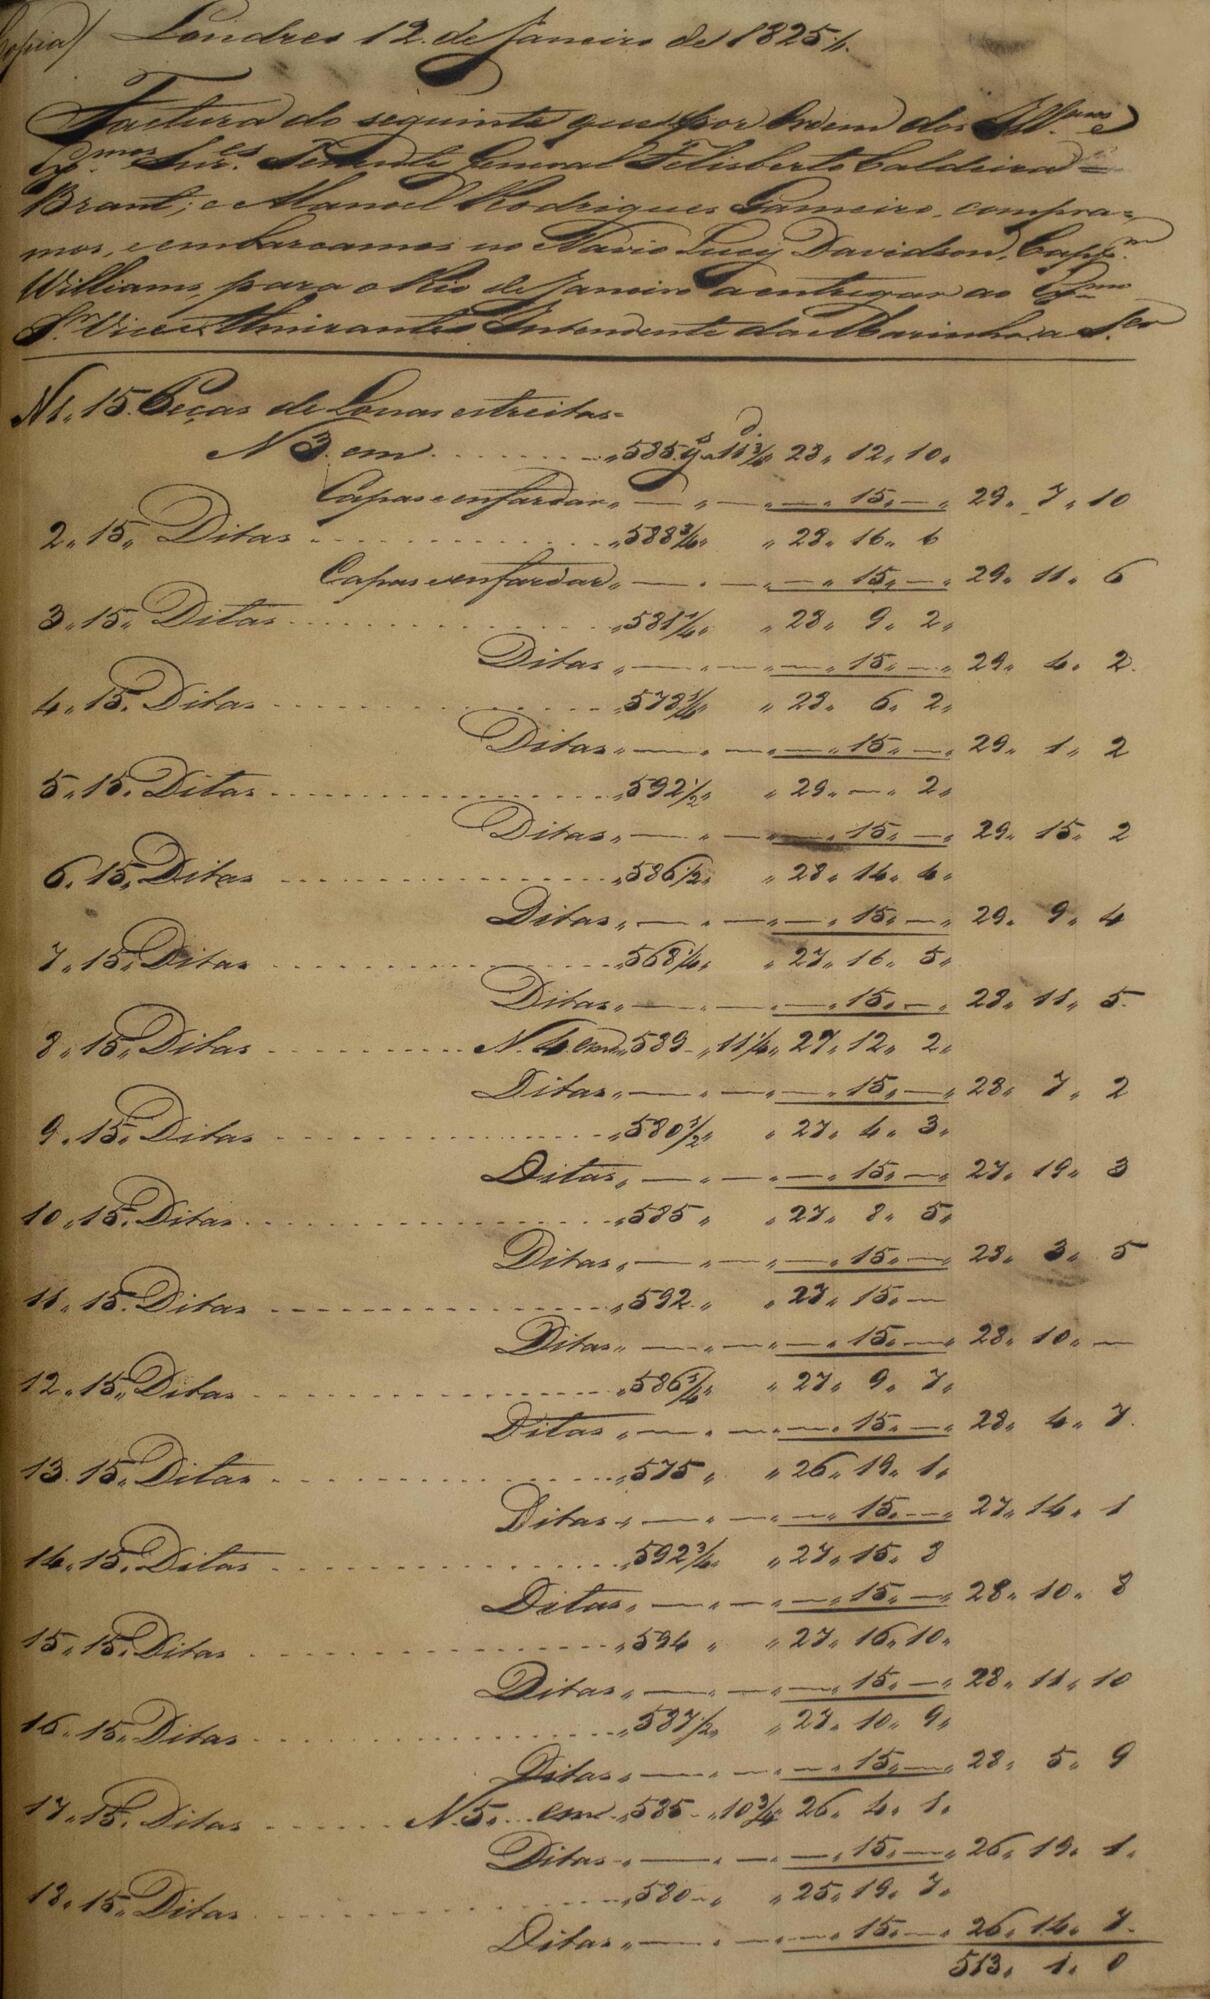 Copia) Londres 12 de Janeiro de 1825 //.
Factura do seguinte que por Ordem dos Ill.mos e
Ex.mos Snr.es Tenente General Felisberto Caldeira =
Brant; e Manoel Rodrigues Gameiro, compra=
mos, e embarcamos no Navio Lucy Davidson, Cap.m
Williams, para o Rio de Janeiro a entregar ao Ex.mo
Sr. Vice Almirante Intendente da Marinha a S.er
N 1. 15. Peças de Lonas estreitas =
N 3 em ......... 585 y.s 11 3/4 d. 28. 12. 10.
Capas e enfardar — — — 15. — 29. 7. 10
2. 15. Ditas ......... 588 3/4 " 28. 16. 6
Capas e enfardar — — — 15. — 29. 11. 6
3. 15. Ditas ......... 581 1/4 " 28. 9. 2.
Ditas — — — 15. — 29. 4. 2.
4. 15. Ditas ......... 578 1/4 " 28. 6. 2.
Ditas — — — 15. — 29. 1. 2
5. 15. Ditas ......... 592 1/2 " 29. — 2.
Ditas — — — 15. — 29. 15. 2
6. 15. Ditas ......... 586 1/2 " 28. 14. 4.
Ditas — — — 15. — 29. 9. 4
7. 15. Ditas ......... 568 1/4 " 27. 16. 5.
Ditas — — — 15. — 28. 11. 5.
8. 15. Ditas ......... N. 4 em 589 " 11 1/4 27. 12. 2.
Ditas — — — 15. — 28. 7. 2
9. 15. Ditas ......... 580 1/2 " 27. 4. 3.
Ditas — — — 15. — 27. 19. 3
10. 15. Ditas ......... 585 " 27. 8. 5.
Ditas — — — 15. — 28. 3. 5
11. 15. Ditas ......... 592 " 27. 15. —
Ditas — — — 15. — 28. 10. —
12. 15. Ditas ......... 586 1/4 " 27. 9. 7.
Ditas — — — 15. — 28. 4. 7.
13. 15. Ditas ......... 575 " 26. 19. 1.
Ditas — — — 15. — 27. 14. 1
14. 15. Ditas ......... 592 3/4 " 27. 15. 8
Ditas — — — 15. — 28. 10. 8
15. 15. Ditas ......... 594 " 27. 16. 10.
Ditas — — — 15. — 28. 11. 10
16. 15. Ditas ......... 587 1/2 " 27. 10. 9.
Ditas — — — 15. — 28. 5. 9
17. 15. Ditas ...... N. 5. em 585 " 10 3/4 26. 4. 1.
Ditas — — — 15. — 26. 19. 1.
18. 15. Ditas ......... 580 " 25. 19. 7.
Ditas — — — 15. — 26. 14. 7.
513. 1. 0